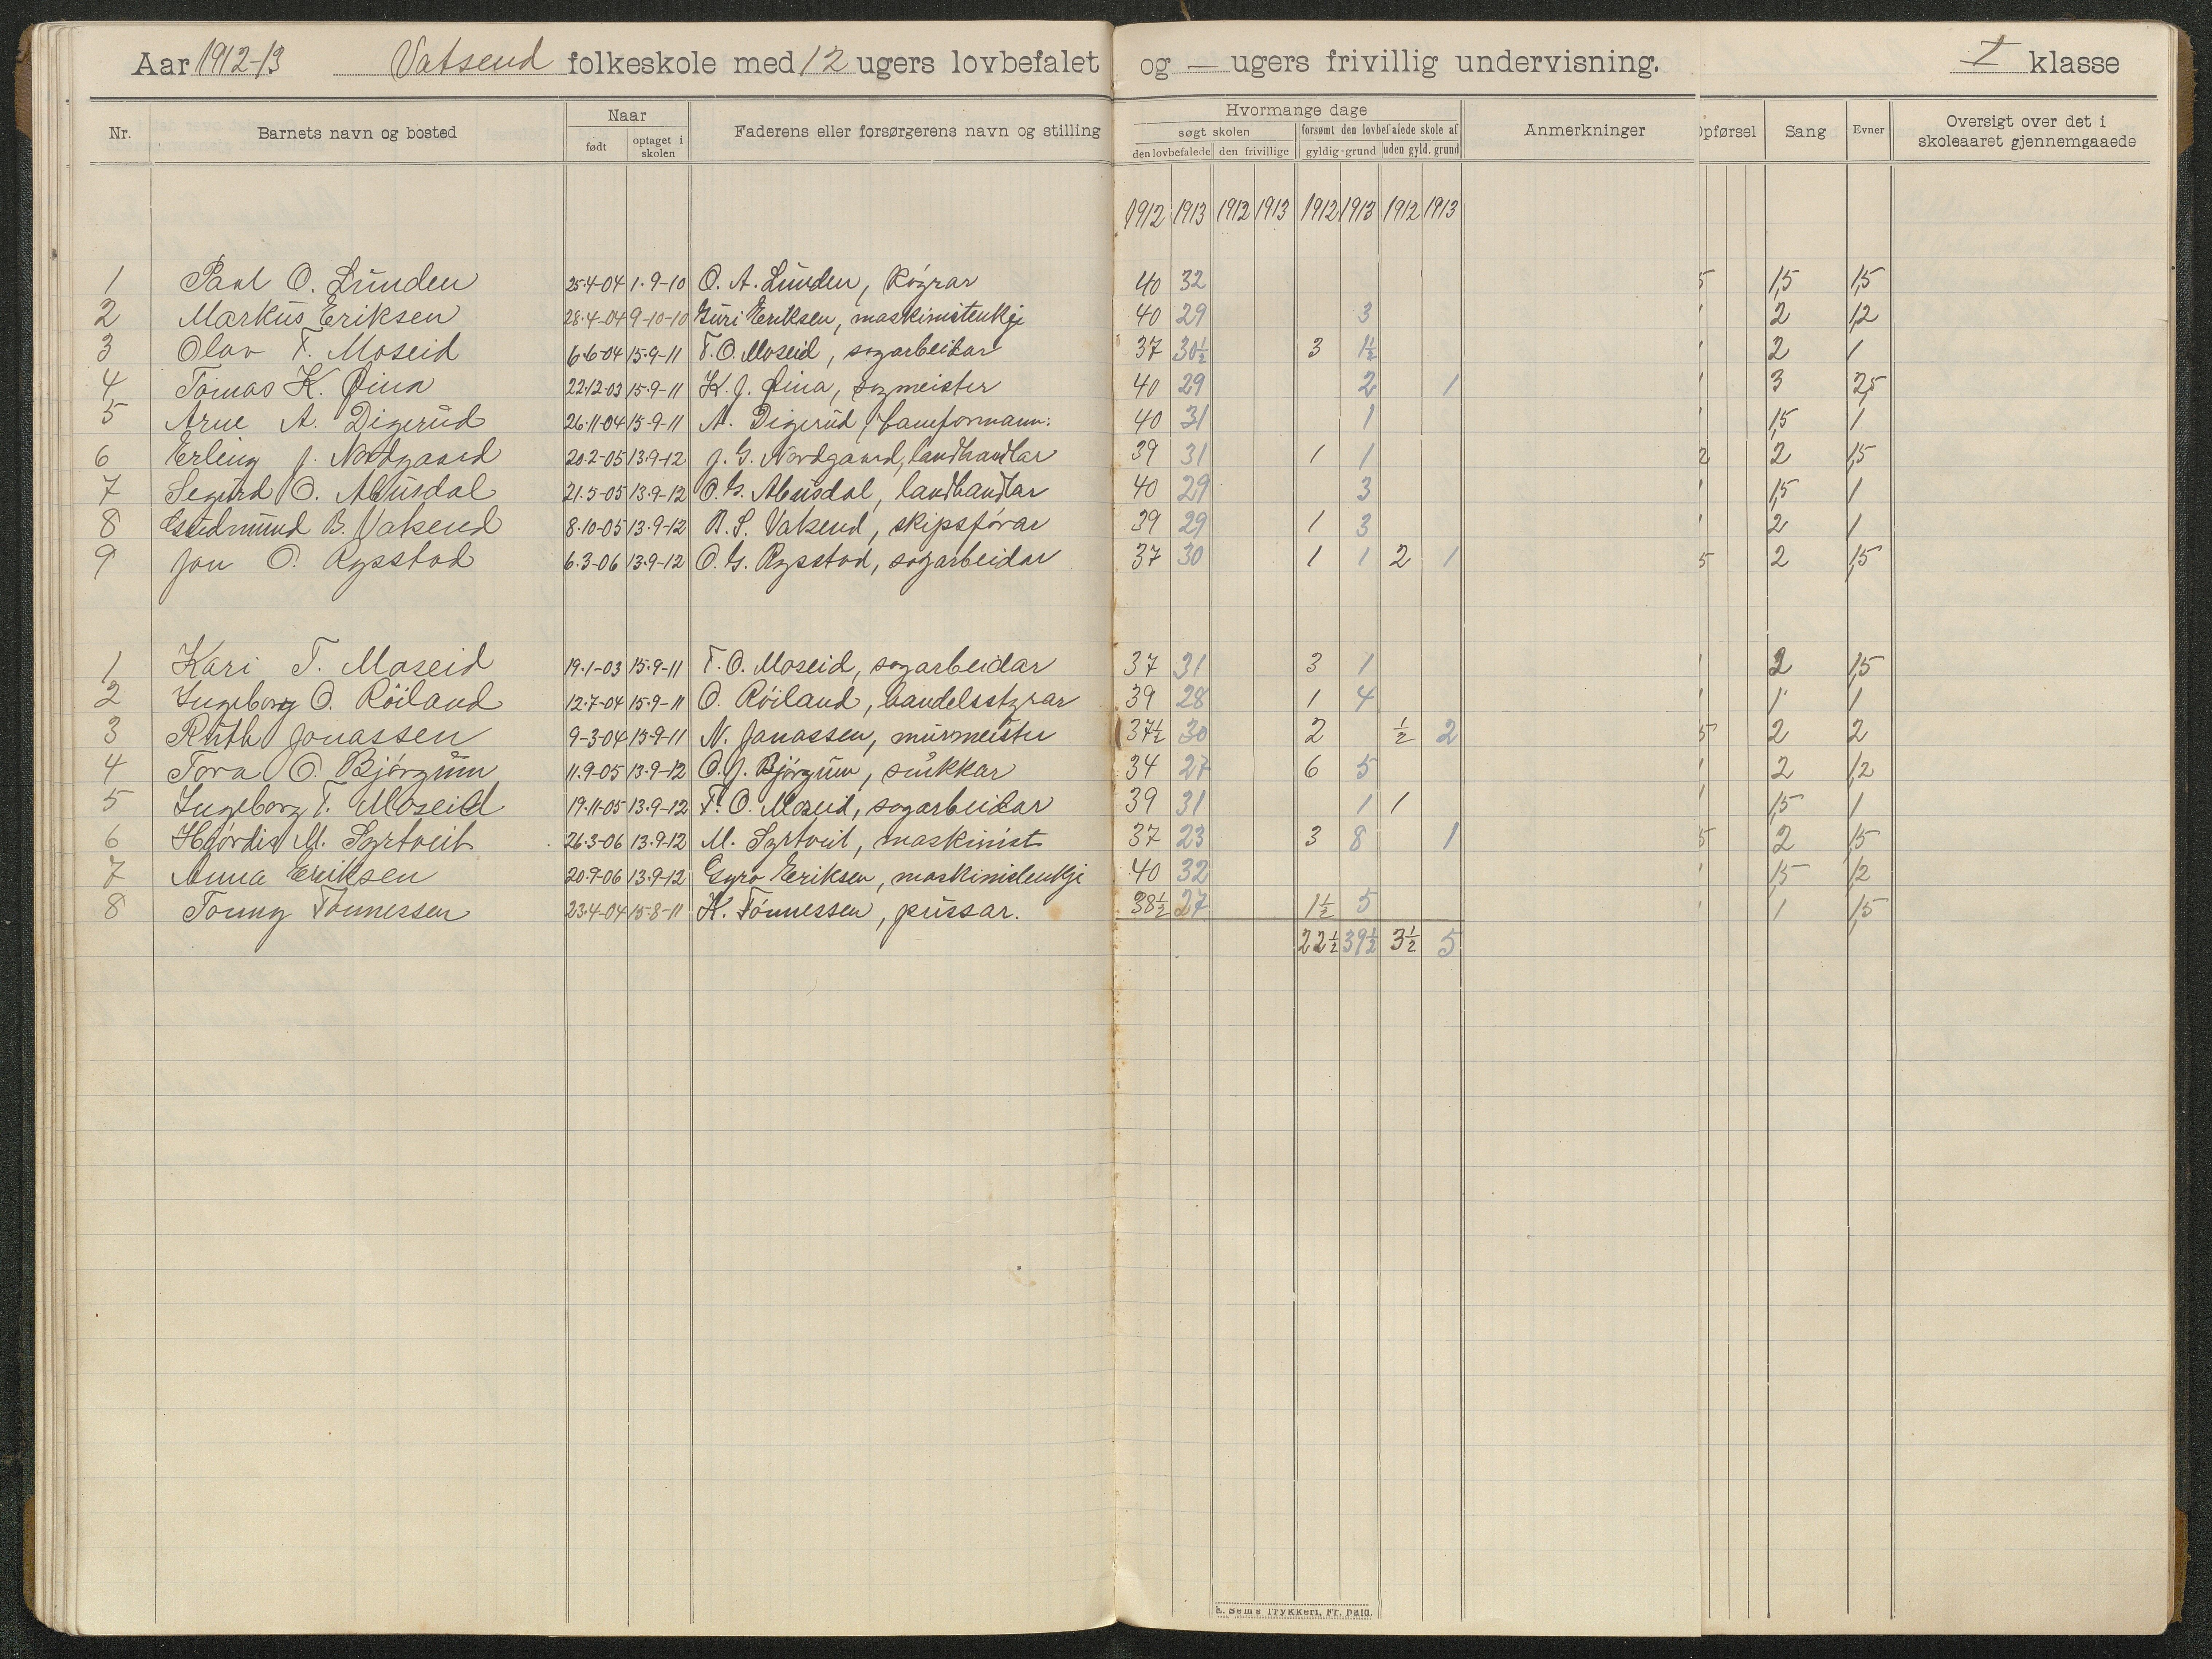 Aar 1912-13 Vatsend folkeskole med 12 ugers lovbefalet og — ugers frivillig undervisning. I klasse
Nr. Barnets navn og bosted Naar Faderens eller forsørgerens navn og stilling Hvormange dage Anmerkninger Opførsel Sang Evner Oversigt over det i skoleaaret gjennemgaaede
født optaget i skolen søgt skolen forsømt den lovbefalede skole af
den lovbefalede den frivillige gyldig grund uden gyld. grund
1912 1913 1912 1913 1912 1913 1912 1913
1 Paul O. Lunden 25-4-04 1-9-10 O. A. Lunden, 40 32 5 1,5 1,5
2 Markus Eriksen 28-4-04 9-10-10 Guri Eriksen, maskinistenkje 40 29 3 1 2 1,2
3 Olav T. Moseid 6-6-04 15-9-11 T. O. Moseid, sagarbeidar 37 30½ 3 1½ 1 2 1
4 Tomas K. Øina 22-12-03 15-9-11 K. J. Øina, sagmeister 40 29 2 1 1 3 2,5
5 Arne A. Digerud 26-11-04 15-9-11 A. Digerud, 40 31 1 1 1,5 1
6 Erling J. Nordgaard 20-2-05 13-9-12 J. G. Nordgaard, landhandlar 39 31 1 1 2 2 1,5
7 Segurd O. Abusdal 21-5-05 13-9-12 O. G. Abusdal, landhandlar 40 29 3 1 1,5 1
8 Gudmund B. Vatsend 8-10-05 13-9-12 B. S. Vatsend, skipsförar 39 29 1 3 1 2 1
9 Jon O. Rysstad 6-3-06 13-9-12 O. G. Rysstad, sagarbeidar 37 30 1 1 2 1 5 2 1,5
1 Kari T. Moseid 19-1-03 15-9-11 T. O. Moseid, sagarbeidar 37 31 3 1 1 2 1,5
2 Ingeborg O. Röiland 12-7-04 15-9-11 O. Röiland, handelsstyrar 39 28 1 4 1 1 1
3 Ruth Jonassen 9-3-04 15-9-11 N. Jonassen, murmeister 37½ 30 2 ½ 2 5 2 2
4 Tora O. Björgum 11-9-05 13-9-12 O. J. Björgum, snikkar 34 27 6 5 1 2 1,2
5 Ingeborg T. Moseid 19-11-05 13-9-12 T. O. Moseid, sagarbeidar 39 31 1 1 1 1,5 1
6 Hjördis M. Syrtveit 26-3-06 13-9-12 M. Syrtveit, maskinist 37 23 3 8 1 5 2 1,5
7 Anna Eriksen 20-9-06 13-9-12 Gyro Eriksen, maskinistenkje 40 32 1 1,5 1,2
8 Tönnessen 23-4-04 15-8-11 K. Tönnessen, pussar. 38½ 27 1½ 5 1 1 1,5
22½ 39½ 3½ 5
E. Sems Trykkeri, Fr. hald.